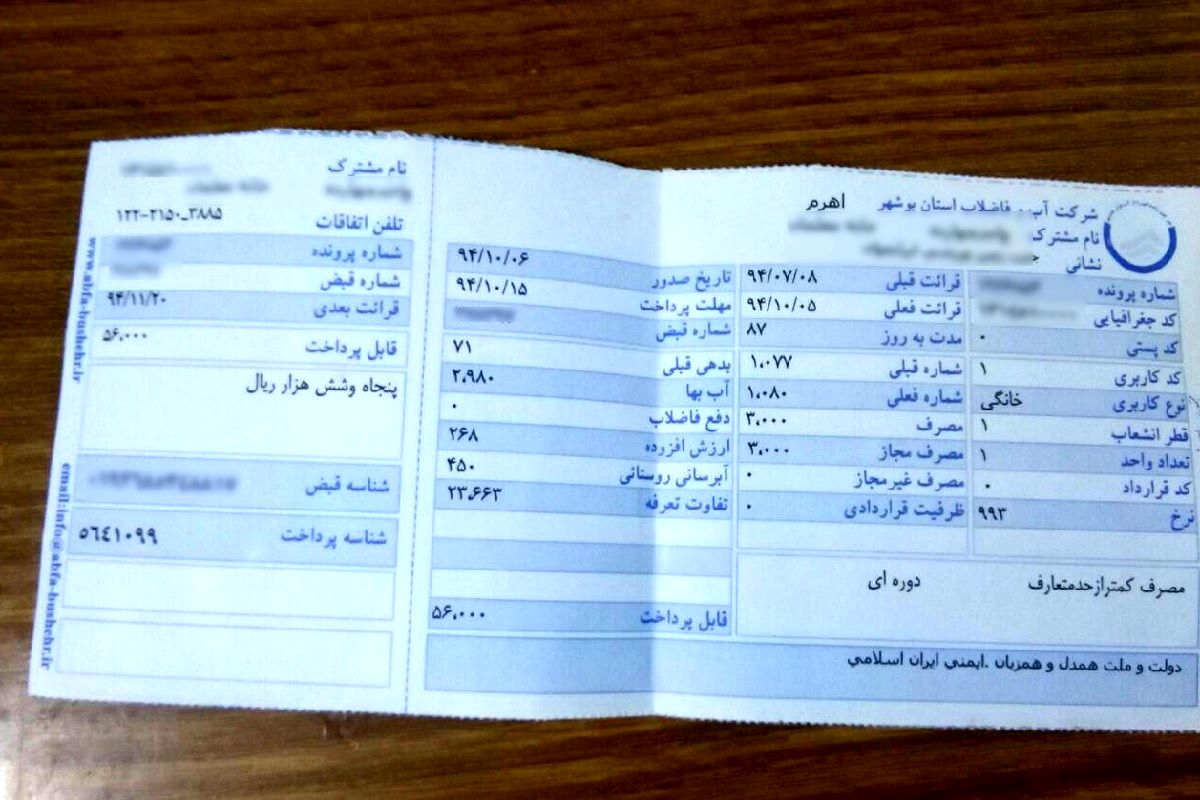 شرکت آب و فاضلاب استان بوشهر اهرم
نام مشترک
نشانی
شماره پرونده
کد جغرافیایی
کد پستی ۰
کد کاربری ۱
نوع کاربری خانگی
قطر انشعاب ۱
تعداد واحد ۱
کد قرارداد ۰
نرخ ۹۹۳
قرائت قبلی ۹۴/۰۷/۰۸
قرائت فعلی ۹۴/۱۰/۰۵
مدت به روز ۸۷
شماره قبلی ۱،۰۷۷
شماره فعلی ۱،۰۸۰
مصرف ۳،۰۰۰
مصرف مجاز ۳،۰۰۰
مصرف غیرمجاز ۰
ظرفیت قراردادی ۰
مصرف کمترازحدمتعارف دوره ای
تاریخ صدور ۹۴/۱۰/۰۶
مهلت پرداخت ۹۴/۱۰/۱۵
شماره قبض
بدهی قبلی ۷۱
آب بها ۲،۹۸۰
دفع فاضلاب ۰
ارزش افزوده ۲۶۸
آبرسانی روستائی ۴۵۰
تفاوت تعرفه ۲۳،۶۶۳
قابل پرداخت ۵۶،۰۰۰
دولت و ملت همدل و همزبان .ایمنی ایران اسلامي
نام مشترک
تلفن اتفاقات ۱۲۲-۲۱۵۰_۳۸۸۵
شماره پرونده
شماره قبض
قرائت بعدی ۹۴/۱۱/۲۰
قابل پرداخت ۵۶،۰۰۰
پنجاه وشش هزار ریال
شناسه قبض
شناسه پرداخت ٥٦٤١٠٩٩
www.abfa-bushehr.ir
email:info@abfa-bushehr.ir